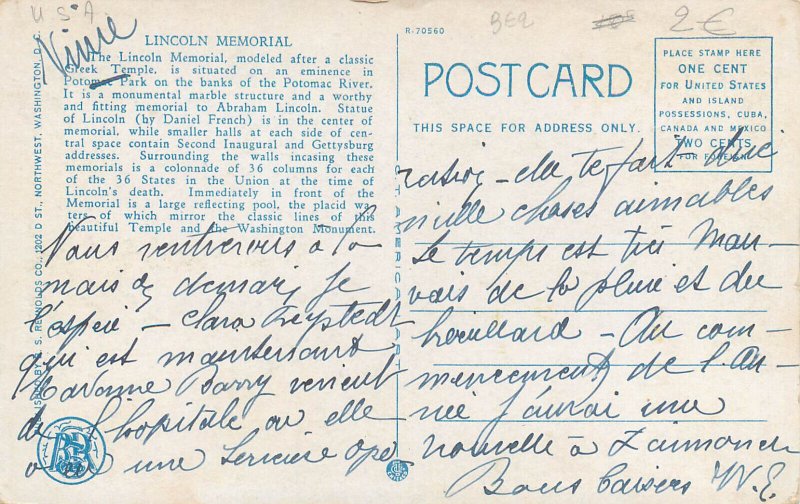 USA
BE2
2 €
LINCOLN MEMORIAL
The Lincoln Memorial, modeled after a classic
Greek Temple, is situated on an eminence in
Potomac Park on the banks of the Potomac River.
It is a monumental marble structure and a worthy
and fitting memorial to Abraham Lincoln. Statue
of Lincoln (by Daniel French) is in the center of
memorial, while smaller halls at each side of cen-
tral space contain Second Inaugural and Gettysburg
addresses. Surrounding the walls incasing these
memorials is a colonnade of 36 columns for each
of the 36 States in the Union at the time of
Lincoln's death. Immediately in front of the
Memorial is a large reflecting pool, the placid wa-
ters of which mirror the classic lines of this
beautiful Temple and the Washington Monument.
Nous rentrerons à la
maison demain je
l'espère – Clara
qui est maintenant
Barry revient
de l'hôpital où elle
a une sérieuse opé
R-70560
POST CARD
THIS SPACE FOR ADDRESS ONLY.
PLACE STAMP HERE
ONE CENT
FOR UNITED STATES
AND ISLAND
POSSESSIONS, CUBA,
CANADA AND MEXICO
TWO CENTS
FOR FOREIGN
ration – elle te fait dire
mille choses aimables
Le temps est très mau-
vais de la pluie et du
brouillard – Au com-
mencement de l'An-
née j'aurai une
nouvelle à
Bons baisers
PUBLISHED BY B. S. REYNOLDS CO., 1202 D ST., NORTHWEST, WASHINGTON, D. C.
BSR